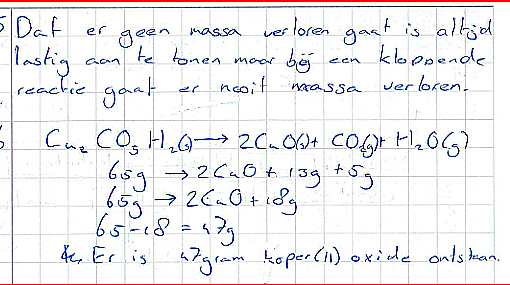 5 Dat er geen massa verloren gaat is altijd
lastig aan te tonen maar bij een kloppende
reactie gaat er nooit massa verloren.
Cu₂ CO₅ H₂(s) → 2CuO(s) + CO₂(g) + H₂O(g)
65g → 2CuO + 13g + 5g
65g → 2CuO + 18g
65-18 = 47g
↳ Er is 47gram koper(II) oxide ontstaan.